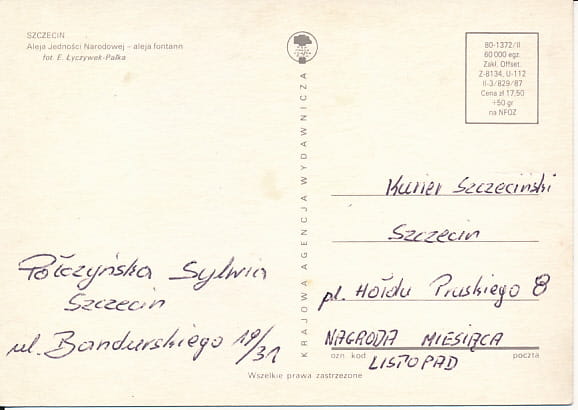 SZCZECIN
Aleja Jedności Narodowej – aleja fontann
fot. E. Łyczywek-Pałka
80-1372/II
60 000 egz.
Zakł. Offset.
Z-8134, U-112
II-3/829/87
Cena zł 17,50
+50 gr
na NFOZ
KRAJOWA AGENCJA WYDAWNICZA
Połczyńska Sylwia
Szczecin
ul. Bandurskiego 19/31
Kurier Szczeciński
Szczecin
pl. Hołdu Pruskiego 8
NAGRODA MIESIĄCA
LISTOPAD
ozn. kod
poczta
Wszelkie prawa zastrzeżone